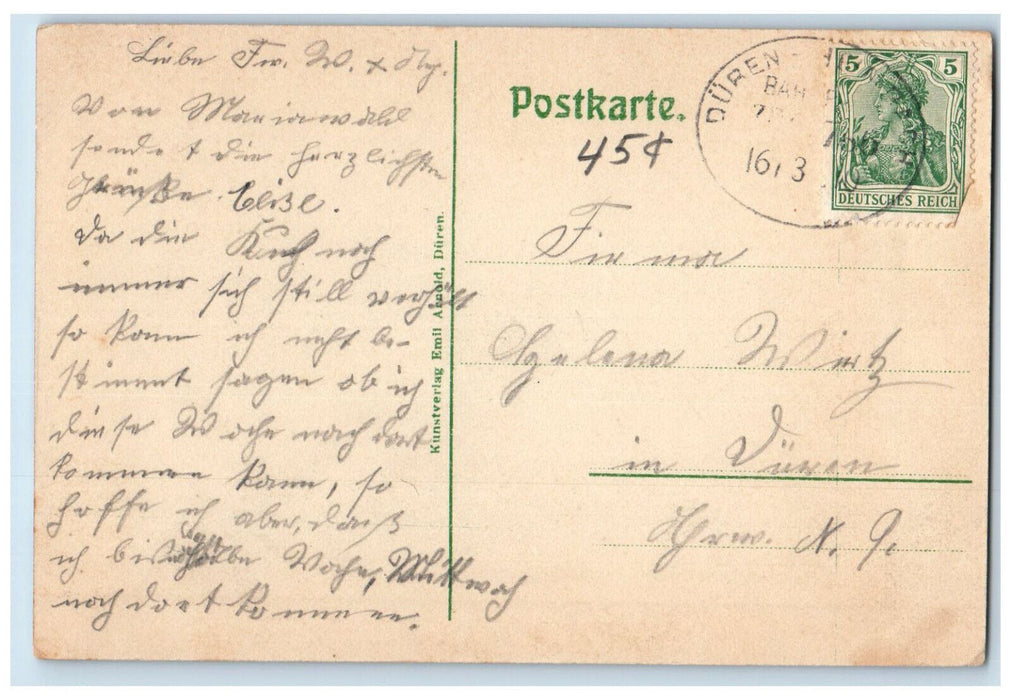 Liebe Fr. W. +
Von Mariawald
sendet die herzlichsten
Grüße
Da die Kuh noch
immer sich still verhält
so kann ich nicht be-
stimmt sagen ob ich
diese Woche nach dort
kommen kann, so
hoffe ich aber, daß
ich bis Woche, Mittwoch
nach dort komme.
Kunstverlag Emil Arnold, Düren.
Postkarte.
45¢
DÜREN
BAH
16/3
5 5
DEUTSCHES REICH
Firma
Helena Wirtz
in Düren
N. 9.